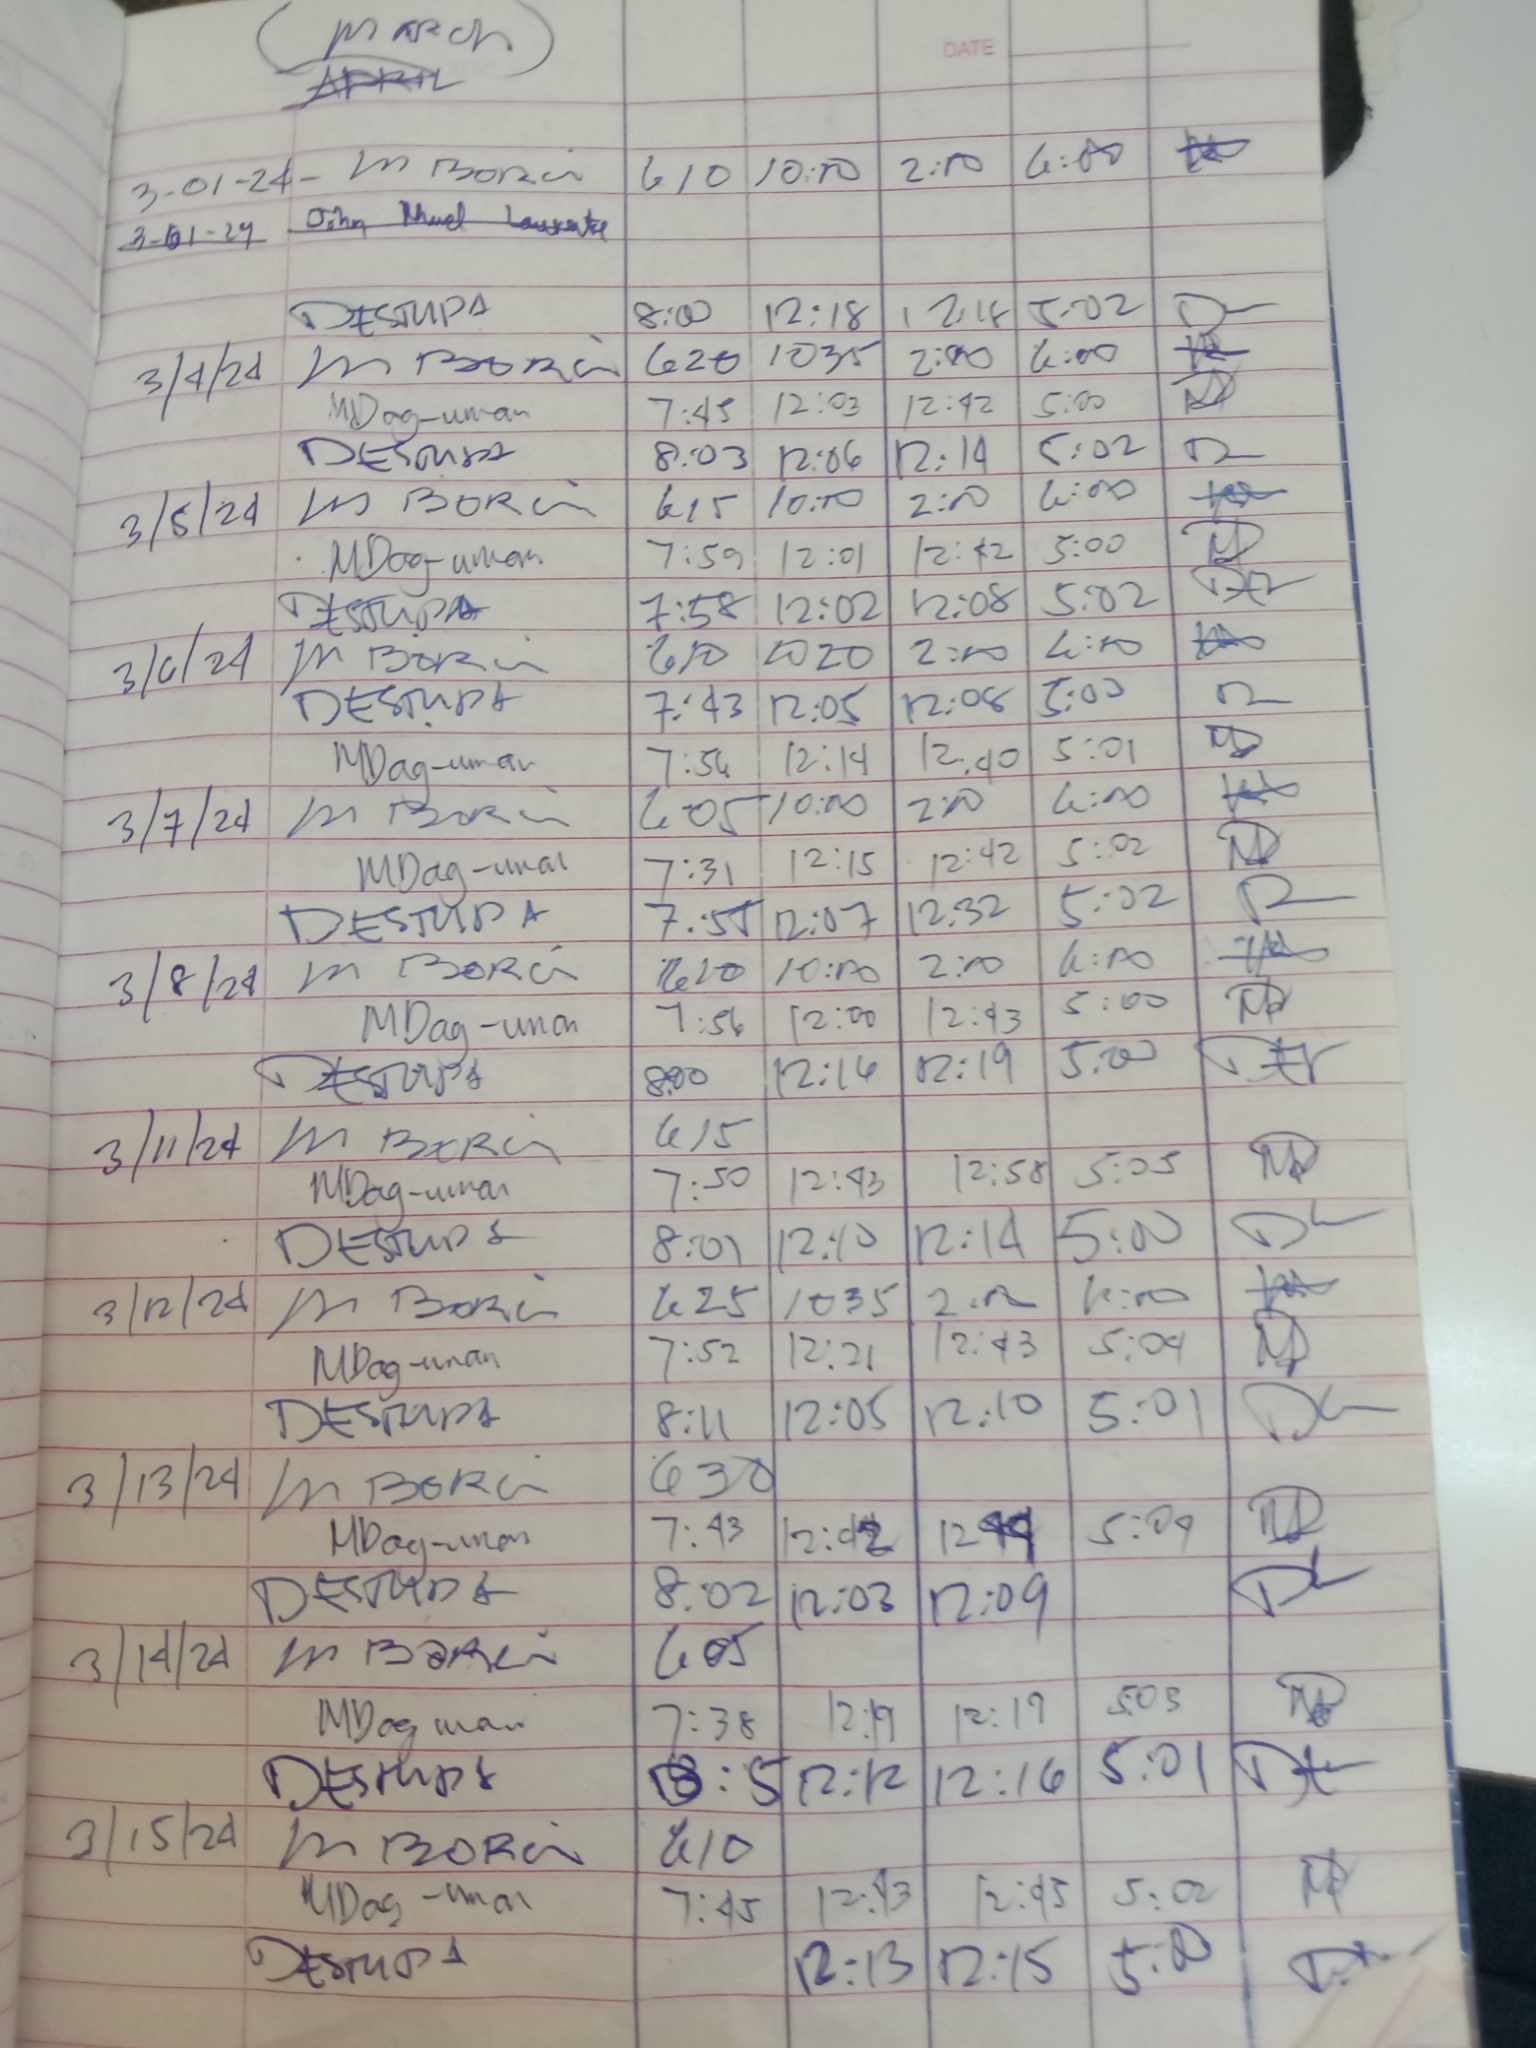 (MARCH)
APRIL
DATE
3-01-24 - M BORCI 610 10:00 2:00 6:00
3-01-24 John
DESTUPA 8:00 12:18 12:18 5:02
3/4/24 M BORCI 620 1035 2:00 6:00
MDag-uman 7:45 12:03 12:42 5:00
DESTUPA 8:03 12:06 12:14 5:02
3/5/24 M BORCI 615 10:00 2:00 6:00
MDag-uman 7:59 12:01 12:42 5:00
DESTUPA 7:58 12:02 12:08 5:02
3/6/24 M BORCI 610 1020 2:00 6:00
DESTUPA 7:43 12:05 12:08 5:00
MDag-uman 7:56 12:14 12:40 5:01
3/7/24 M BORCI 605 10:00 2:00 6:00
MDag-uman 7:31 12:15 12:42 5:02
DESTUPA 7:55 12:07 12:32 5:02
3/8/24 M BORCI 620 10:00 2:00 6:00
MDag-unan 7:56 12:00 12:43 5:00
DESTUPA 8:00 12:16 12:19 5:00
3/11/24 M BORCI 615
MDag-uman 7:50 12:43 12:58 5:05
DESTUPA 8:01 12:10 12:14 5:00
3/12/24 M BORCI 625 1035 2:00 6:00
MDag-unan 7:52 12:21 12:43 5:04
DESTUPA 8:11 12:05 12:10 5:01
3/13/24 M BORCI 630
MDag-unan 7:43 12:42 5:04
DESTUPA 8:02 12:03 12:09
3/14/24 M BORCI 605
MDag uman 7:38 12:19 12:19 5:03
DESTUPA 12:12 12:16 5:01
3/15/24 M BORCI 610
MDag-unan 7:45 12:43 12:45 5:02
DESTUPA 12:13 12:15 5:00